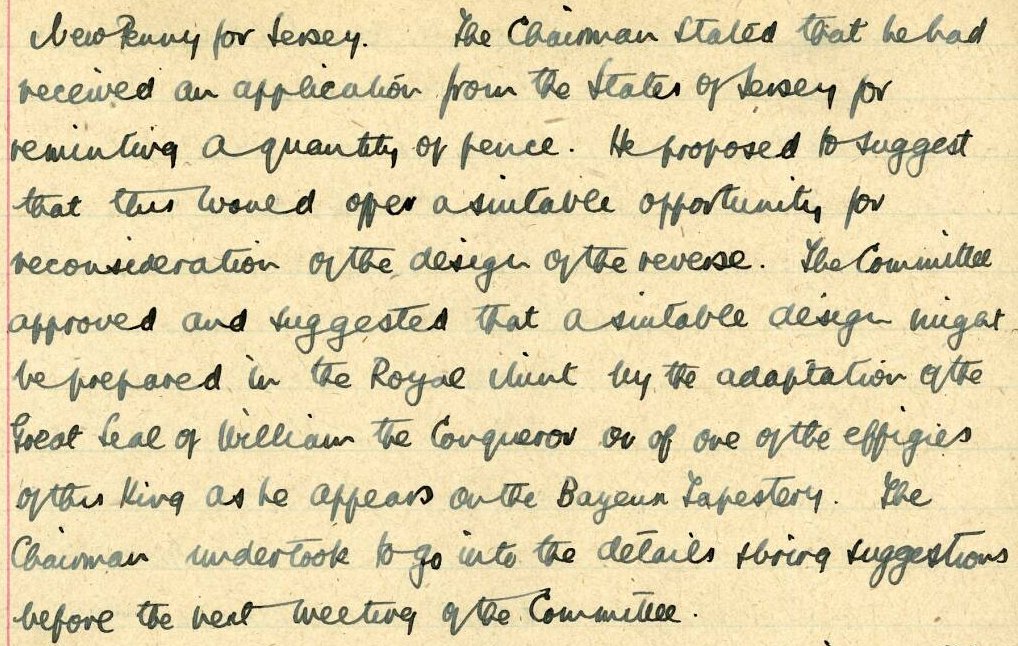 New Penny for Jersey. The Chairman stated that he had
received an application from the States of Jersey for
reminting a quantity of pence. He proposed to suggest
that this would offer a suitable opportunity for
reconsideration of the design of the reverse. The Committee
approved and suggested that a suitable design might
be prepared in the Royal Mint by the adaptation of the
Great Seal of William the Conqueror or of one of the effigies
of this King as he appears on the Bayeux Tapestery. The
Chairman undertook to go into the details & bring suggestions
before the next meeting of the Committee.